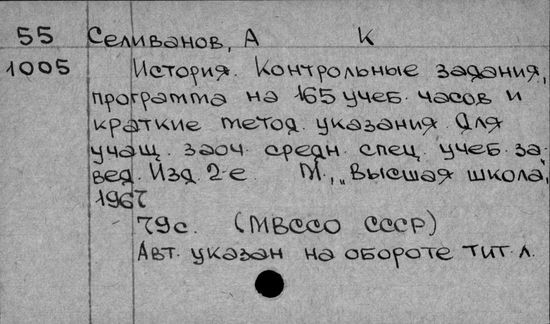 55 Селиванов, А К
1005 История. Контрольные задания,
программа на 165 учеб. часов и
краткие метод. указания для
учащ. заоч. средн. спец. учеб. за-
вед. Изд. 2-е. М., „Высшая школа",
1967
79с. (МВССО СССР)
Авт. указан на обороте тит. л.